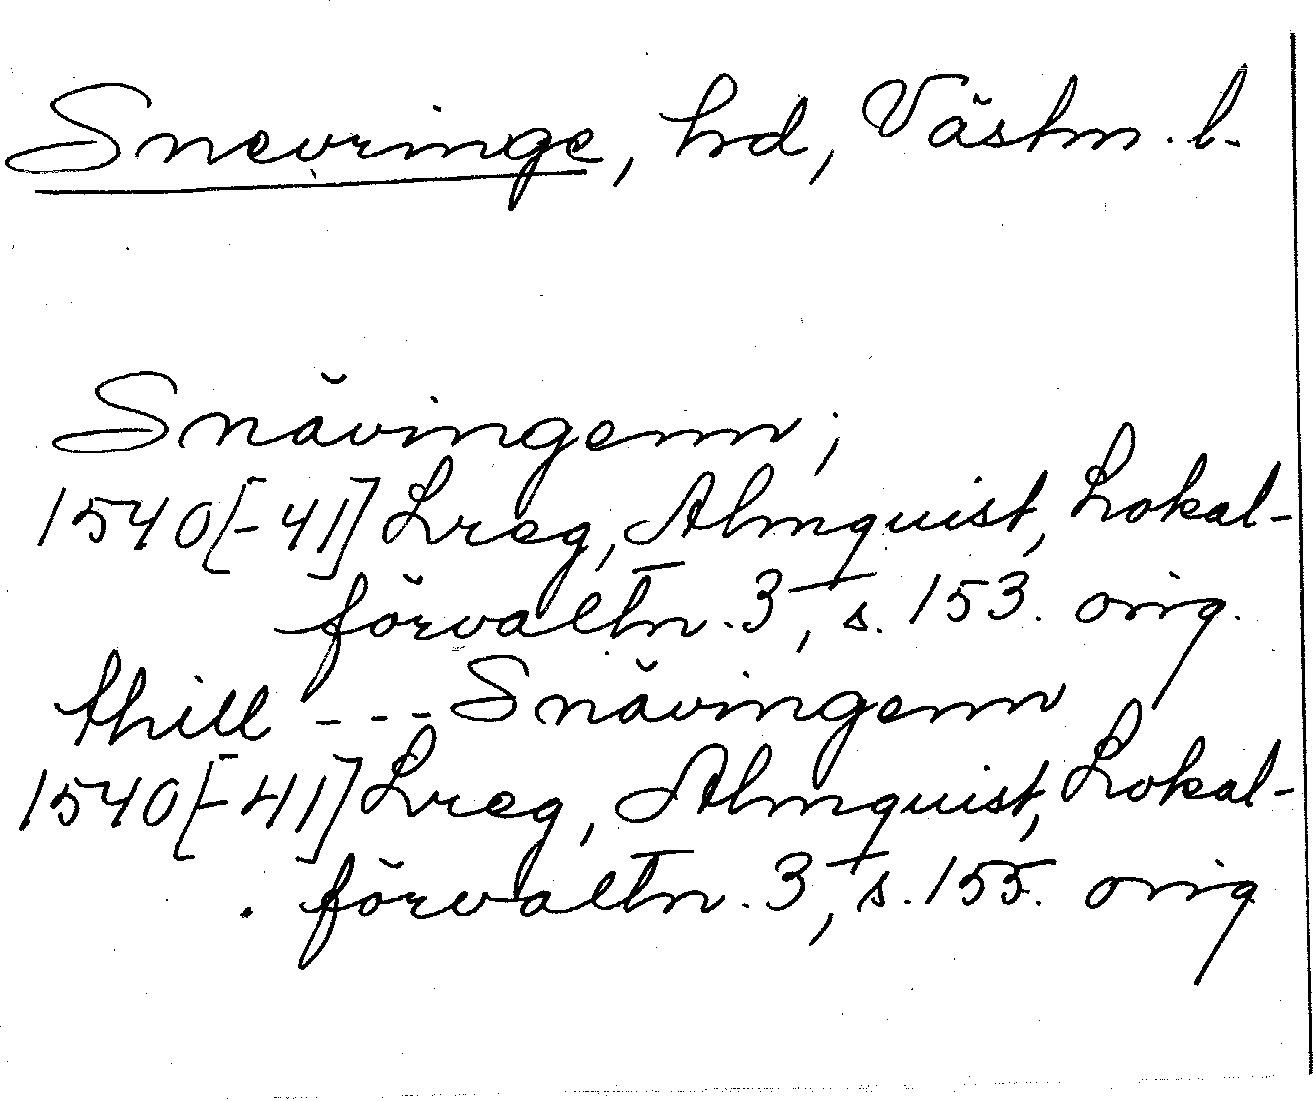 Snevringe, hd, Västm. l.
Snävingenn;
1540[-41] Lreg, Almquist, Lokal-
förvaltn. 3, s. 153. orig.
thill --- Snävingenn
1540[-41] Lreg, Almquist, Lokal-
förvaltn. 3, s. 155. orig